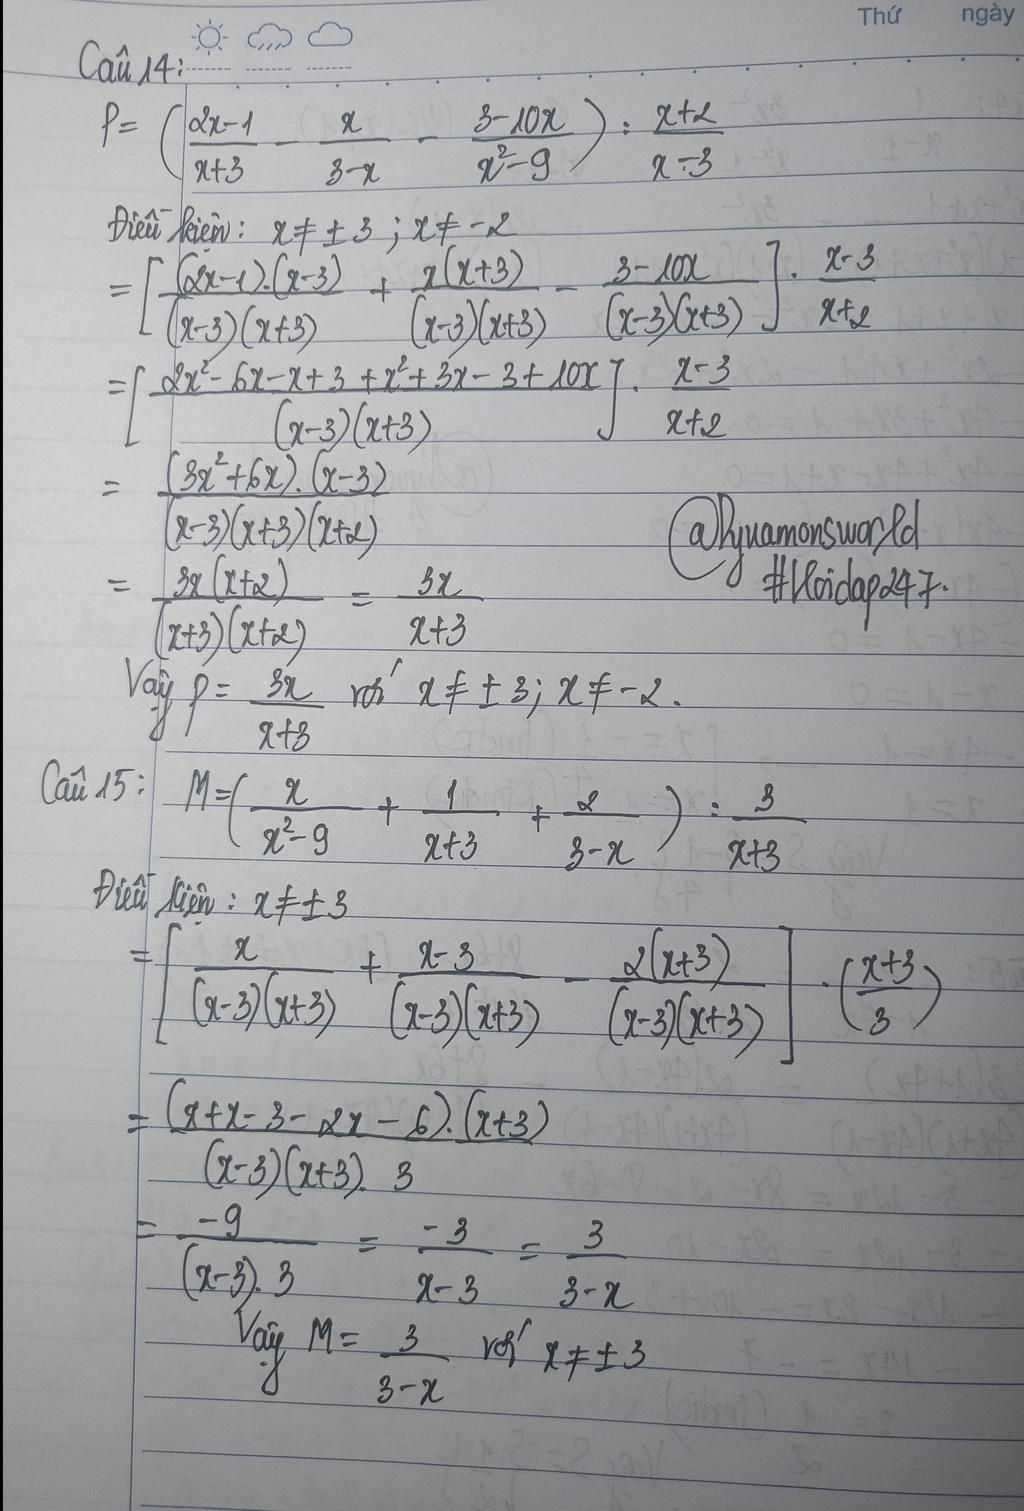 Thứ ngày
Câu 14:
P = ( (2x-1)/(x+3) - x/(3-x) - (3-10x)/(x²-9) ) : (x+2)/(x-3)
Điều kiện: x ≠ ±3 ; x ≠ -2
= [ (2x-1).(x-3)/(x-3)(x+3) + x(x+3)/(x-3)(x+3) - (3-10x)/(x-3)(x+3) ] . (x-3)/(x+2)
= [ (2x²-6x-x+3+x²+3x-3+10x)/(x-3)(x+3) ] . (x-3)/(x+2)
= (3x²+6x).(x-3)/(x-3)(x+3)(x+2)
@Pyuamonsworld
#Hoidap247.
= 3x(x+2)/(x+3)(x+2) = 3x/(x+3)
Vậy P = 3x/(x+3) với x ≠ ±3; x ≠ -2.
Câu 15: M = ( x/(x²-9) + 1/(x+3) + 2/(3-x) ) : 3/(x+3)
Điều kiện: x ≠ ±3
= [ x/(x-3)(x+3) + (x-3)/(x-3)(x+3) - 2(x+3)/(x-3)(x+3) ] . ((x+3)/3)
= (x+x-3-2x-6).(x+3)/(x-3)(x+3).3
= -9/(x-3).3 = -3/(x-3) = 3/(3-x)
Vậy M = 3/(3-x) với x ≠ ±3